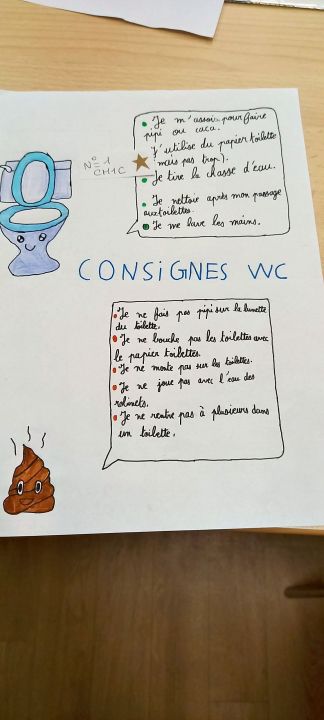 • Je m'assois pour faire
pipi ou caca.
J'utilise du papier toilette
(mais pas trop).
• Je tire la chasse d'eau.
• Je nettoie après mon passage
aux toilettes.
• Je me lave les mains.
N°=1
CH1C
CONSiGNES WC
• Je ne fais pas pipi sur la lunette
du toilette.
• Je ne bouche pas les toilettes avec
le papier toilettes.
• Je ne monte pas sur les toilettes.
• Je ne joue pas avec l'eau des
robinets.
• Je ne rentre pas à plusieurs dans
un toilette.